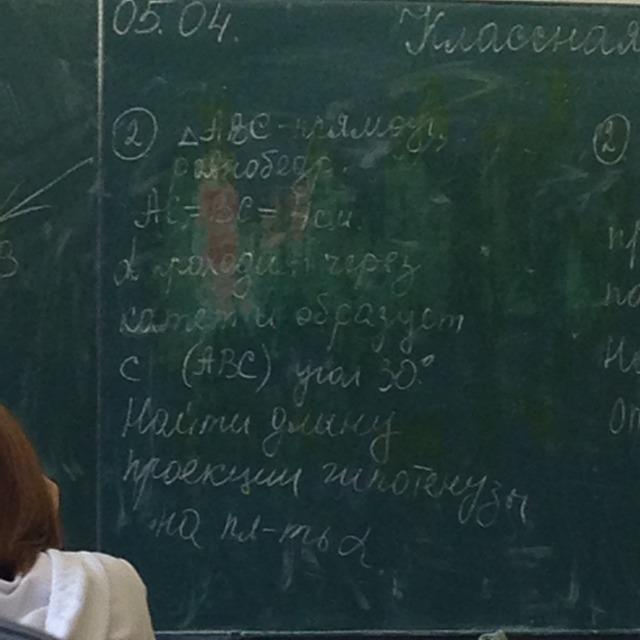 05.04.
Классная
② △ABC-прямоуг,
равнобедр.
AC=BC= см.
α проходит через
катет и образует
с (ABC) угол 30°
Найти длину
проекции гипотенузы
на пл-ть α
②
B